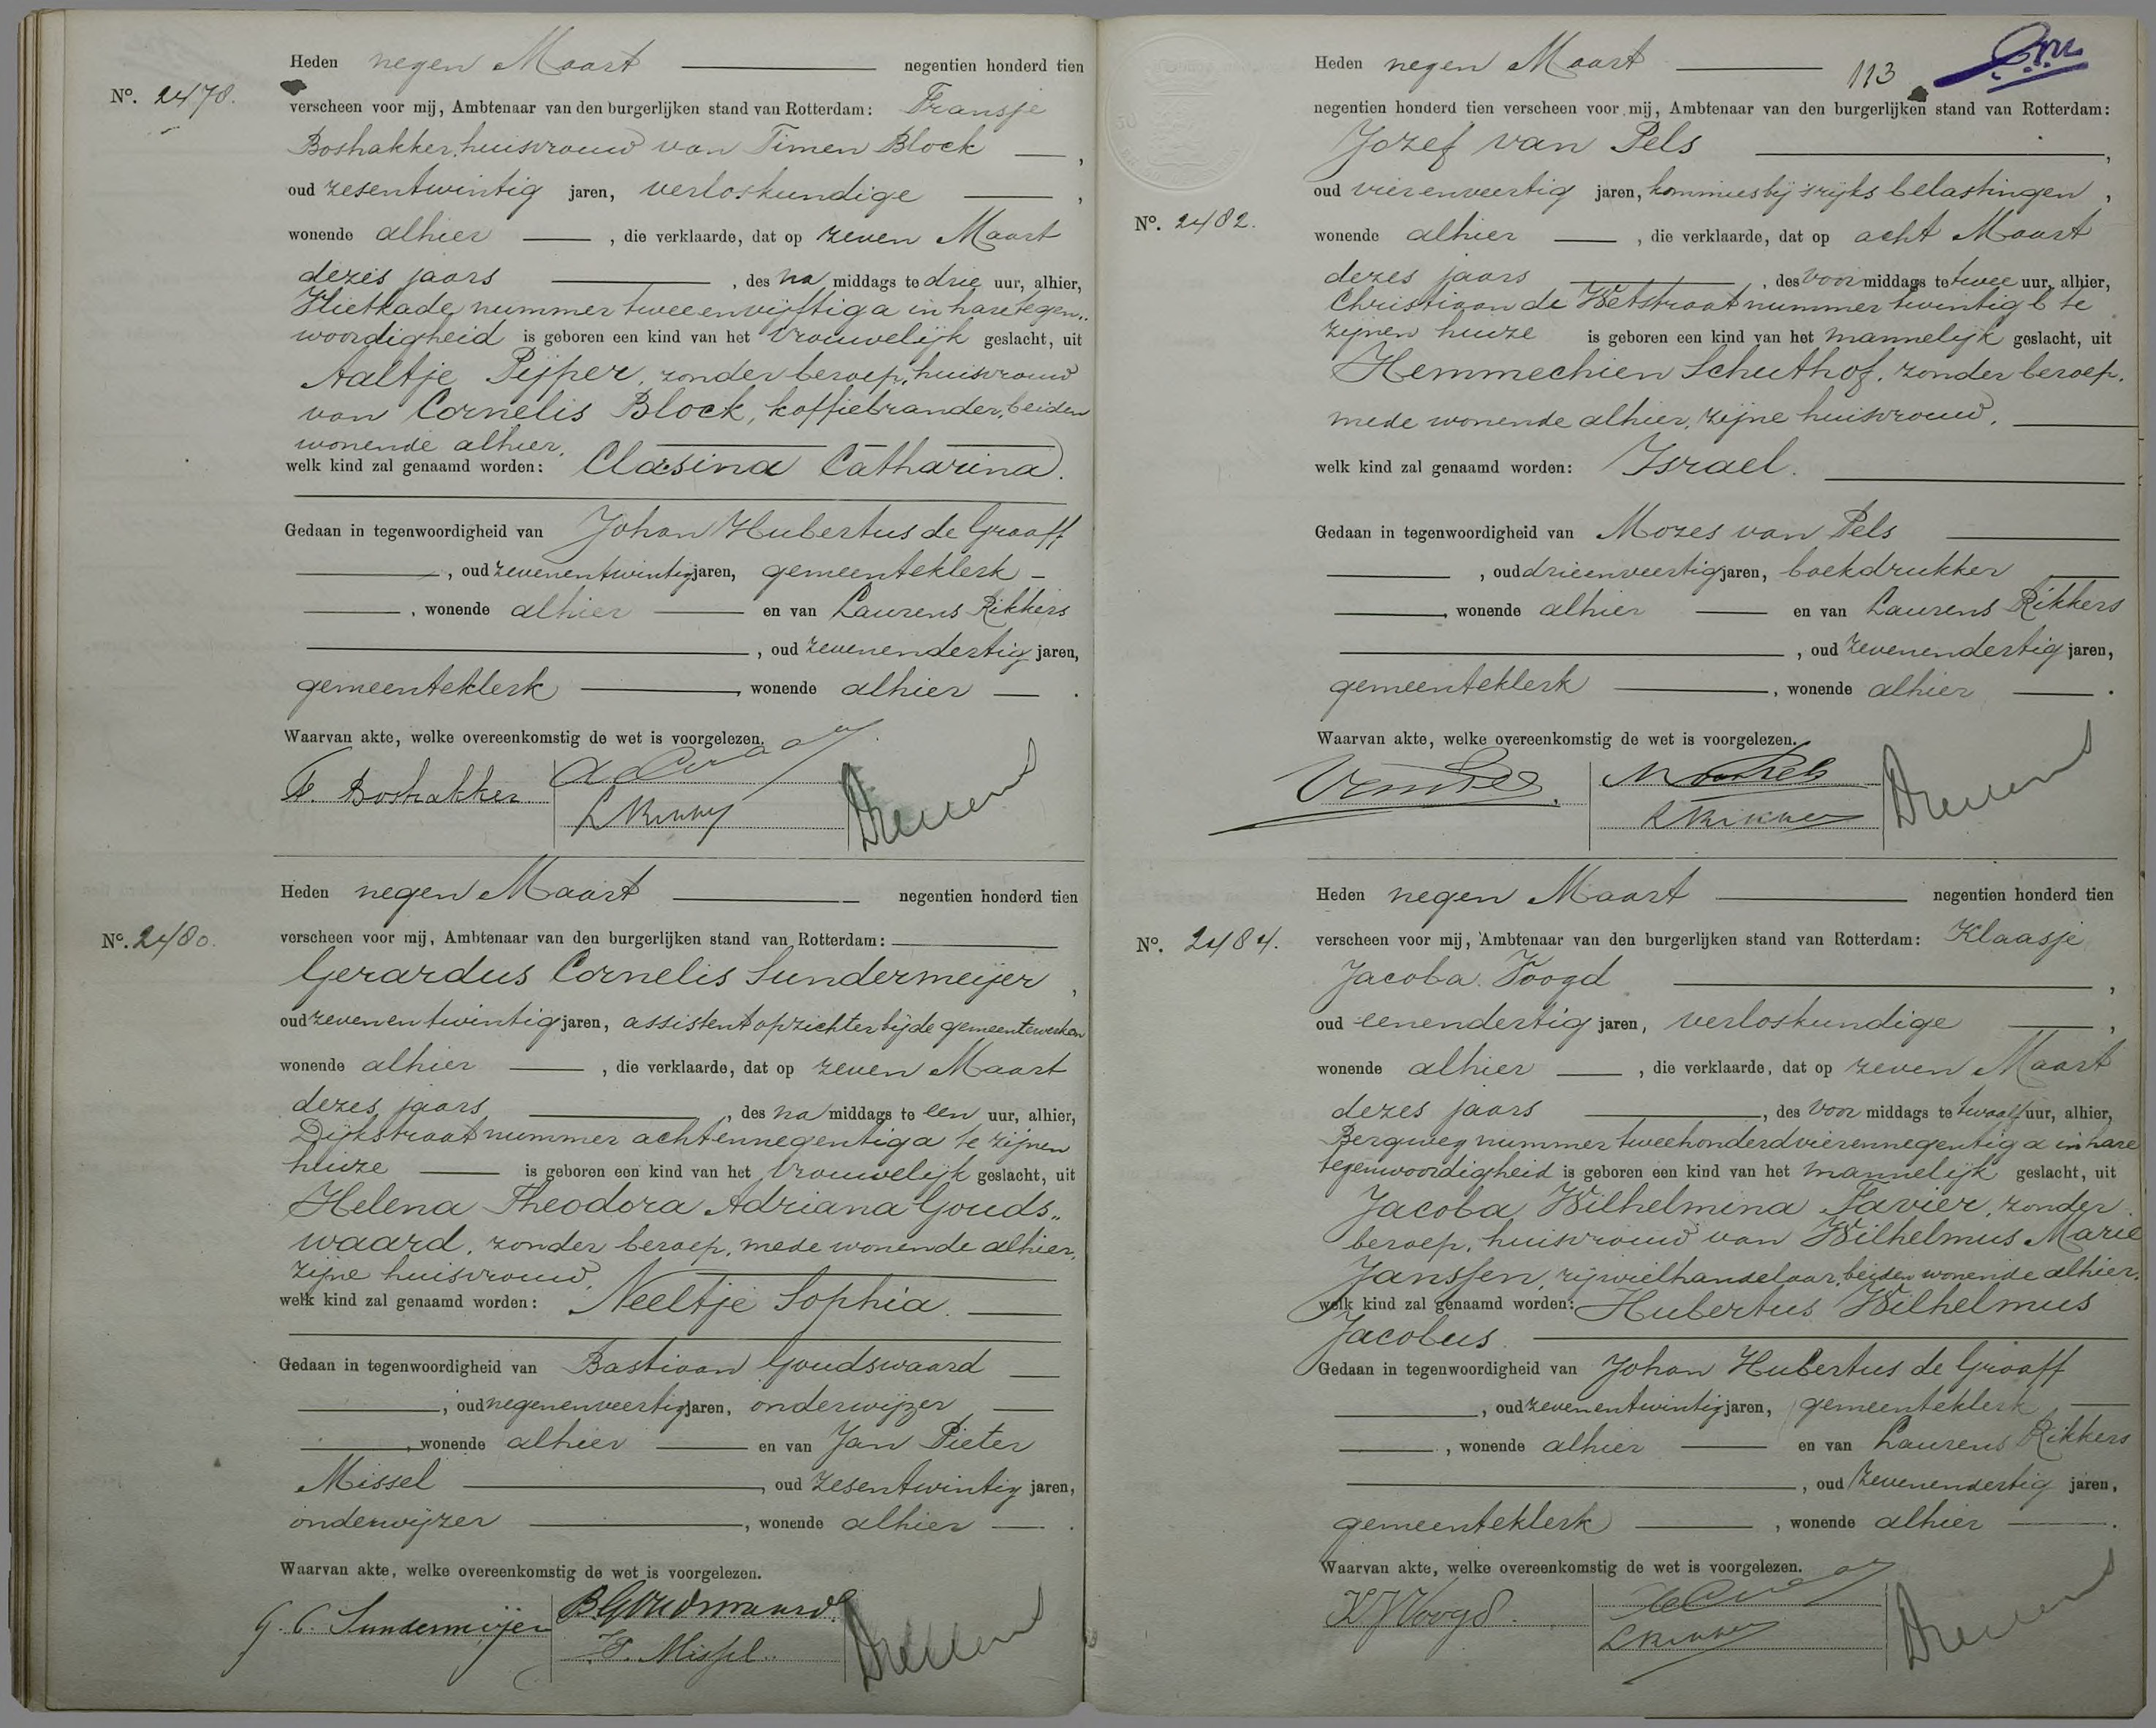 Heden negen Maart negentien honderd tien
No. 2478.
verscheen voor mij, Ambtenaar van den burgerlijken stand van Rotterdam: Fransje
Boshakker, huisvrouw van Timen Block,
oud zesentwintig jaren, verloskundige,
wonende alhier, die verklaarde, dat op zeven Maart
dezes jaars, des na middags te drie uur, alhier,
Vlietkade nummer tweeenvijftig a in hare tegen„
woordigheid is geboren een kind van het vrouwelijk geslacht, uit
Aaltje Pijper, zonder beroep, huisvrouw
van Cornelis Block, koffiebrander, beiden
wonende alhier,
welk kind zal genaamd worden: Clasina Catharina.
Gedaan in tegenwoordigheid van Johan Hubertus de Graaff
, oud zevenentwintig jaren, gemeenteklerk
, wonende alhier en van Laurens Rikkers
, oud zevenendertig jaren,
gemeenteklerk, wonende alhier.
Waarvan akte, welke overeenkomstig de wet is voorgelezen.
F. Boshakker
Heden negen Maart negentien honderd tien
No. 2480.
verscheen voor mij, Ambtenaar van den burgerlijken stand van Rotterdam:
Gerardus Cornelis Sundermeijer,
oud zevenentwintig jaren, assistent opzichter bij de gemeentewerken
wonende alhier, die verklaarde, dat op zeven Maart
dezes jaars, des na middags te een uur, alhier,
Dijkstraat nummer achtennegentig a te zijnen
huize is geboren een kind van het vrouwelijk geslacht, uit
Helena Theodora Adriana Gouds„
waard, zonder beroep, mede wonende alhier,
zijne huisvrouw,
welk kind zal genaamd worden: Neeltje Sophia.
Gedaan in tegenwoordigheid van Bastiaan Goudswaard
, oud negenenveertig jaren, onderwijzer
, wonende alhier en van Jan Pieter
Missel, oud zesentwintig jaren,
onderwijzer, wonende alhier.
Waarvan akte, welke overeenkomstig de wet is voorgelezen.
G. C. Sundermeijer
B Goudswaard
J. P. Missel.
113
Heden negen Maart
negentien honderd tien verscheen voor mij, Ambtenaar van den burgerlijken stand van Rotterdam:
Jozef van Pels,
oud vierenveertig jaren, kommies bij 's rijks belastingen,
No. 2482.
wonende alhier, die verklaarde, dat op acht Maart
dezes jaars, des voor middags te twee uur, alhier,
Christiaan de Wetstraat nummer twintig b te
zijnen huize is geboren een kind van het mannelijk geslacht, uit
Hemmechien Schuthof, zonder beroep,
mede wonende alhier, zijne huisvrouw,
welk kind zal genaamd worden: Israel.
Gedaan in tegenwoordigheid van Mozes van Pels
, oud drieenveertig jaren, boekdrukker
, wonende alhier en van Laurens Rikkers
, oud zevenendertig jaren,
gemeenteklerk, wonende alhier.
Waarvan akte, welke overeenkomstig de wet is voorgelezen.
M van Pels
L Rikkers
Heden negen Maart negentien honderd tien
No. 2484.
verscheen voor mij, Ambtenaar van den burgerlijken stand van Rotterdam: Klaasje
Jacoba Voogd,
oud eenendertig jaren, verloskundige,
wonende alhier, die verklaarde, dat op zeven Maart
dezes jaars, des voor middags te twaalf uur, alhier,
Bergweg nummer tweehonderdvierennegentig a in hare
tegenwoordigheid is geboren een kind van het mannelijk geslacht, uit
Jacoba Wilhelmina Favier, zonder
beroep, huisvrouw van Wilhelmus Marie
Janssen, rijwielhandelaar, beiden wonende alhier,
welk kind zal genaamd worden: Hubertus Wilhelmus
Jacobus.
Gedaan in tegenwoordigheid van Johan Hubertus de Graaff
, oud zevenentwintig jaren, gemeenteklerk
, wonende alhier en van Laurens Rikkers
, oud zevenendertig jaren,
gemeenteklerk, wonende alhier.
Waarvan akte, welke overeenkomstig de wet is voorgelezen.
K J Voogd.